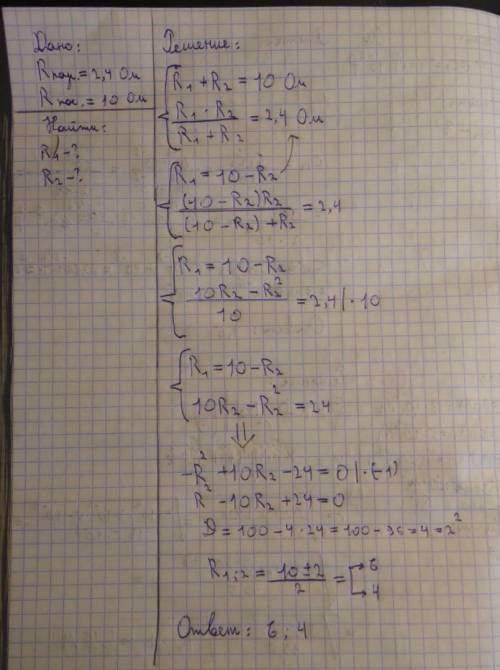 Дано:
Rпар. = 2,4 Ом
Rпос. = 10 Ом
Найти:
R₁ - ?
R₂ - ?
Решение:
R₁ + R₂ = 10 Ом
R₁ · R₂ / R₁ + R₂ = 2,4 Ом
R₁ = 10 - R₂
(10 - R₂)R₂ / (10 - R₂) + R₂ = 2,4
R₁ = 10 - R₂
10R₂ - R₂² / 10 = 2,4 | · 10
R₁ = 10 - R₂
10R₂ - R₂² = 24
⇓
-R₂² + 10R₂ - 24 = 0 | · (-1)
R² - 10R₂ + 24 = 0
D = 100 - 4 · 24 = 100 - 96 = 4 = 2²
R₁;₂ = 10 ± 2 / 2 = 6
4
Ответ: 6 ; 4